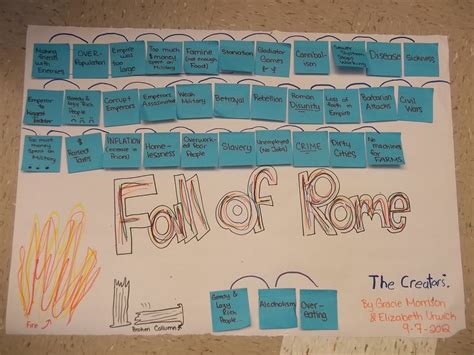 friends
with
Enemies
OVER-
Population
Empire was
too
large
Too much
$ money
Spent on
Military
Famine
(not enough
Food)
Starvation
Gladiator
Games
Cannibal-
ism
Disease
Sickness
Emperor to
biggest
bidder
Lazy Rich
People
Corrupt
Emperors
Emperors
Assassinated
Weak
Military
Betrayal
Rebellion
Roman
Disunity
Loss of
Faith in
Empire
Barbarian
Attacks
Civil
Wars
Too much
money
Spent on
Military
$
Raised
Taxes
INFLATION
(increase in
Prices)
Home-
lessness
Overwork-
ed Poor
People
Slavery
Unemployed
(No Jobs)
CRIME
Dirty
Cities
No
machines
for
FARMS
Fall of Rome
Fire
Broken Column
Greedy &
Lazy
Rich
People
Alcoholism
Over-
eating
The Creators:
By Gracie Morrison
& Elizabeth Urwick
9-7-2012